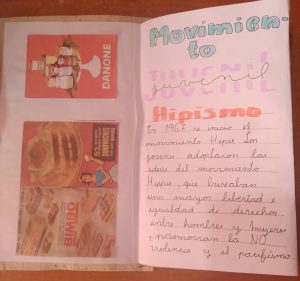 DANONE
SANDWICHES
BIMBO
Movimien-
to
JUVENIL
juvenil
Hipismo
En 1967 se inicio el
movimiento Hippie. Los
jovenes adoptaron las
ideas del movimiento
Hippie, que buscaban
una mayor libertad e
igualdad de derechos
entre hombres y mujeres
y promovian la NO
violencia y el pacifismo.